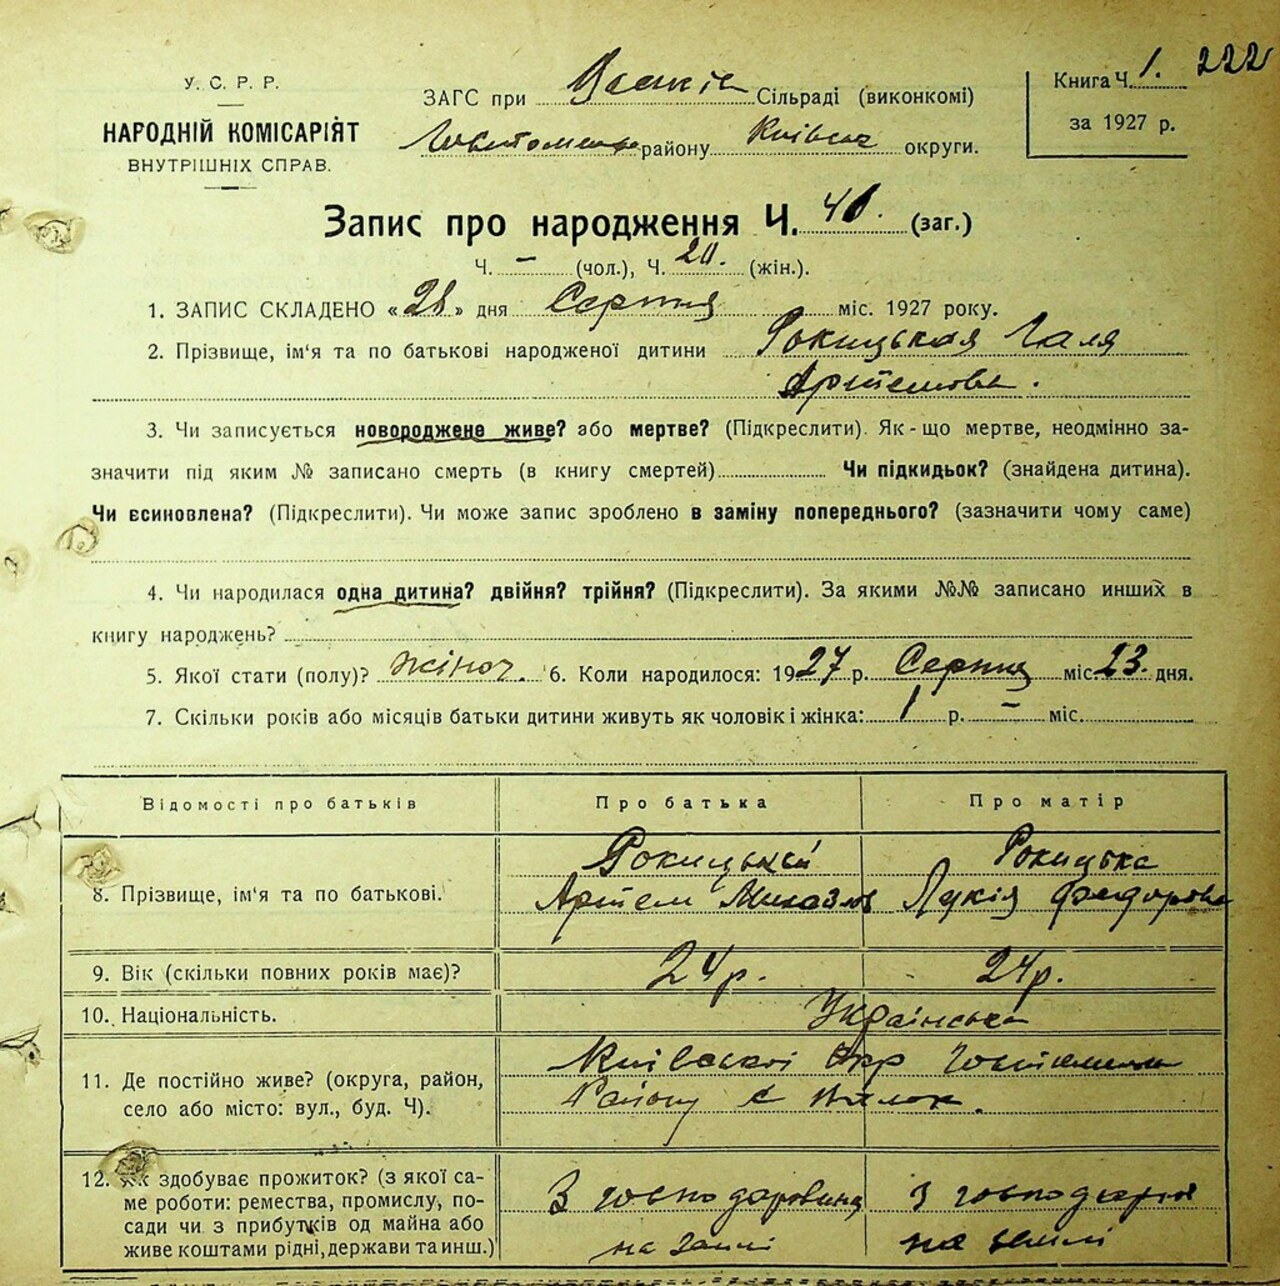 У. С. Р. Р.
НАРОДНІЙ КОМІСАРІЯТ
ВНУТРІШНІХ СПРАВ.
ЗАГС при Сільраді (виконкомі)
району Київськ округи.
Книга Ч. 1. 222
за 1927 р.
Запис про народження Ч. (заг.)
Ч. – (чол.), Ч. 20. (жін.).
1. ЗАПИС СКЛАДЕНО «28» дня Серпня міс. 1927 року.
2. Прізвище, ім'я та по батькові народженої дитини Рокицькая Галя
Артемовн.
3. Чи записується новороджене живе? або мертве? (Підкреслити). Як-що мертве, неодмінно за-
значити під яким № записано смерть (в книгу смертей) Чи підкидьок? (знайдена дитина).
Чи єсиновлена? (Підкреслити). Чи може запис зроблено в заміну попереднього? (зазначити чому саме)
4. Чи народилася одна дитина? двійня? трійня? (Підкреслити). За якими №№ записано инших в
книгу народжень?
5. Якої стати (полу)? жіноч. 6. Коли народилося: 1927 р. Серпня міс. 23. дня.
7. Скільки років або місяців батьки дитини живуть як чоловік і жінка: 1 р. – міс.
Відомості про батьків Про батька Про матір
Рокицький Рокицька
8. Прізвище, ім'я та по батькові. Артем Михайлов Лукія Федоровн
9. Вік (скільки повних років має)? 24 р. 24 р.
10. Національність. Українська
Київської Окр Гостомель
11. Де постійно живе? (округа, район,
село або місто: вул., буд. Ч). Району с
12. Як здобуває прожиток? (з якої са-
ме роботи: ремества, промислу, по-
сади чи з прибутків од майна або
живе коштами рідні, держави та инш.)
З господаровання З господарки
на землі на землі